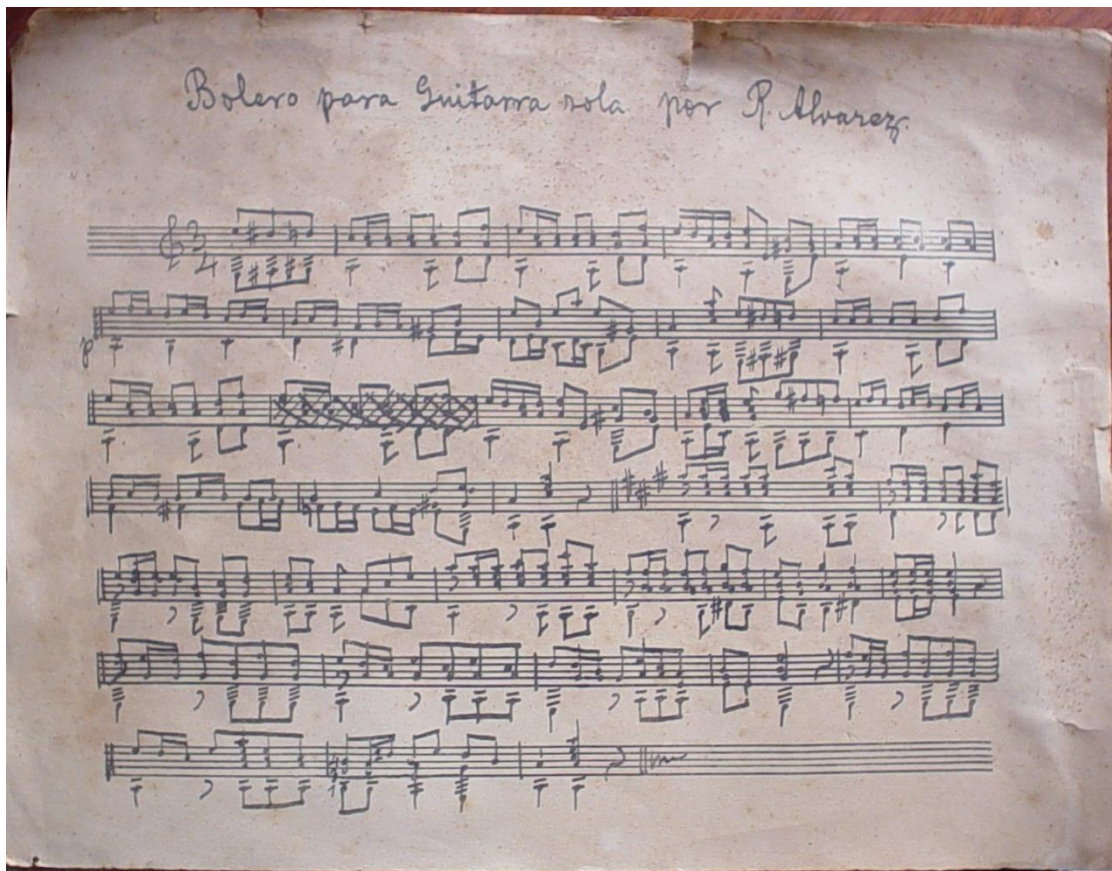 Bolero para Guitarra sola por R. Alvarez.
3
4
p